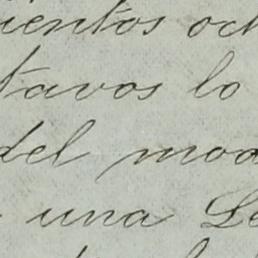 ientos och
tavos lo
del mod
una Le